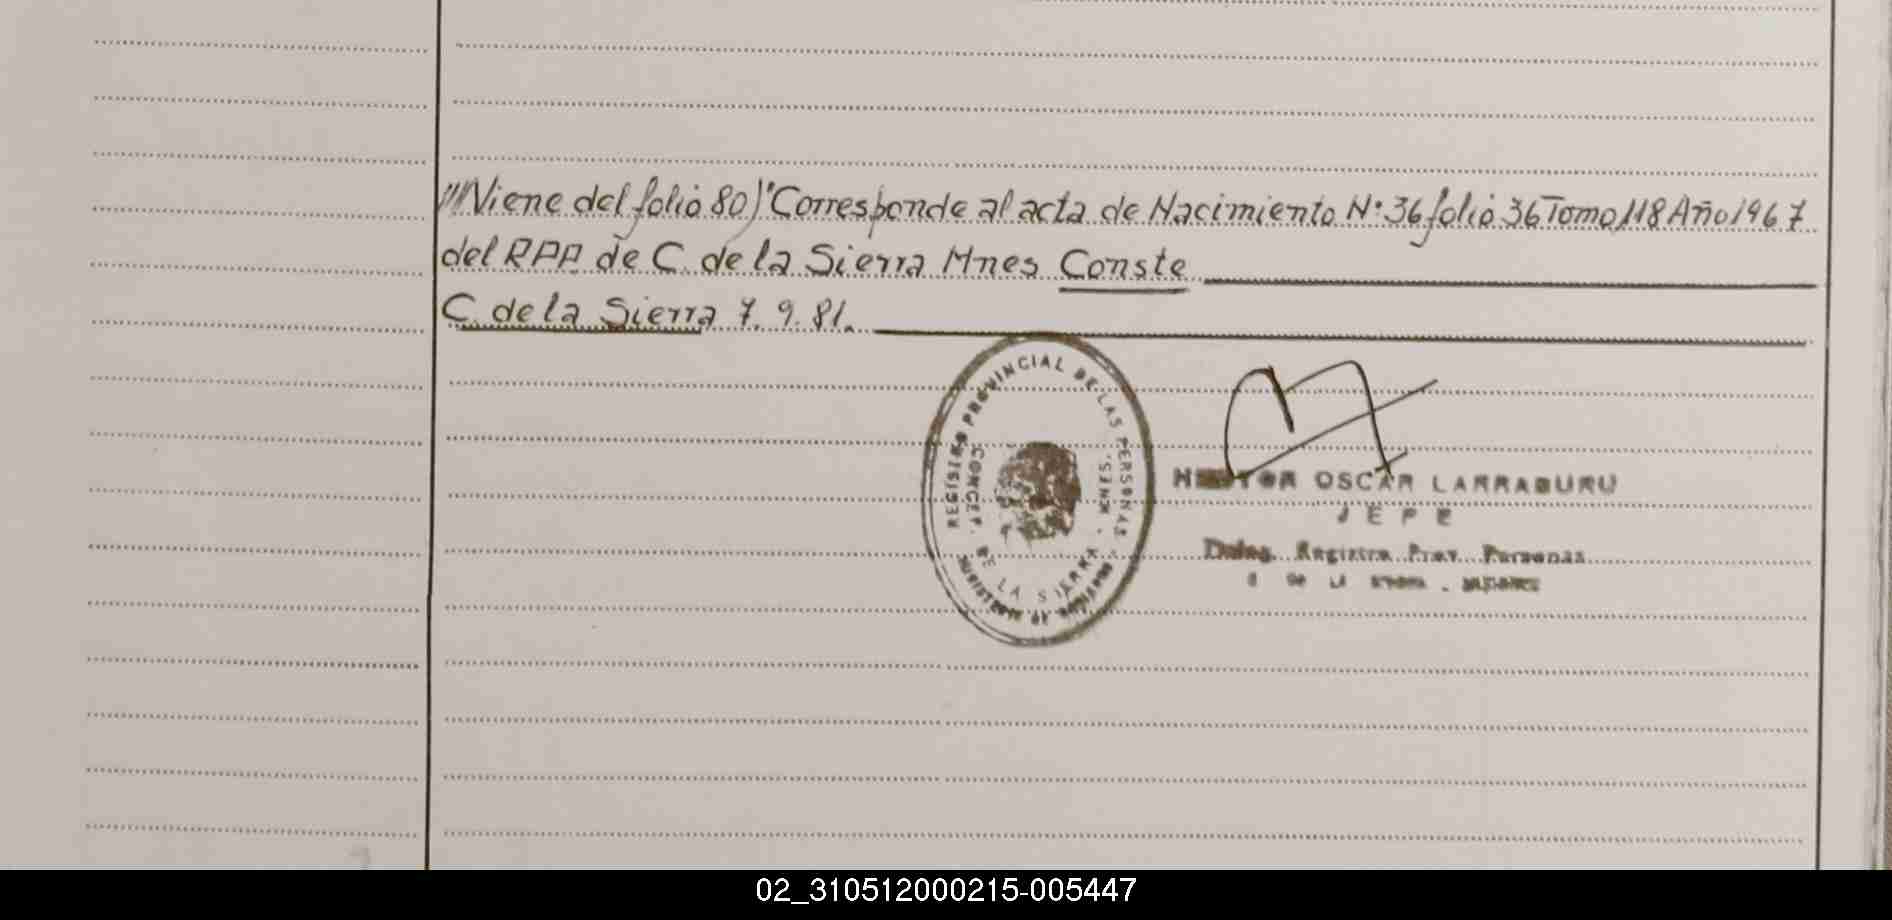 ///Viene del folio 80)"Corresponde al acta de Nacimiento Nº 36 folio 36 Tomo 118 Año 1967
del RPP de C. de la Sierra Mnes Conste
C. de la Sierra 7. 9. 81.
REGISTRO PROVINCIAL DE LAS PERSONAS
CONCEP. DE LA SIERRA. MNES.
MINISTERIO DE GOBIERNO
HECTOR OSCAR LARRABURU
JEFE
Deleg. Registro Prov. Personas
C. DE LA SIERRA - MISIONES
02_310512000215-005447